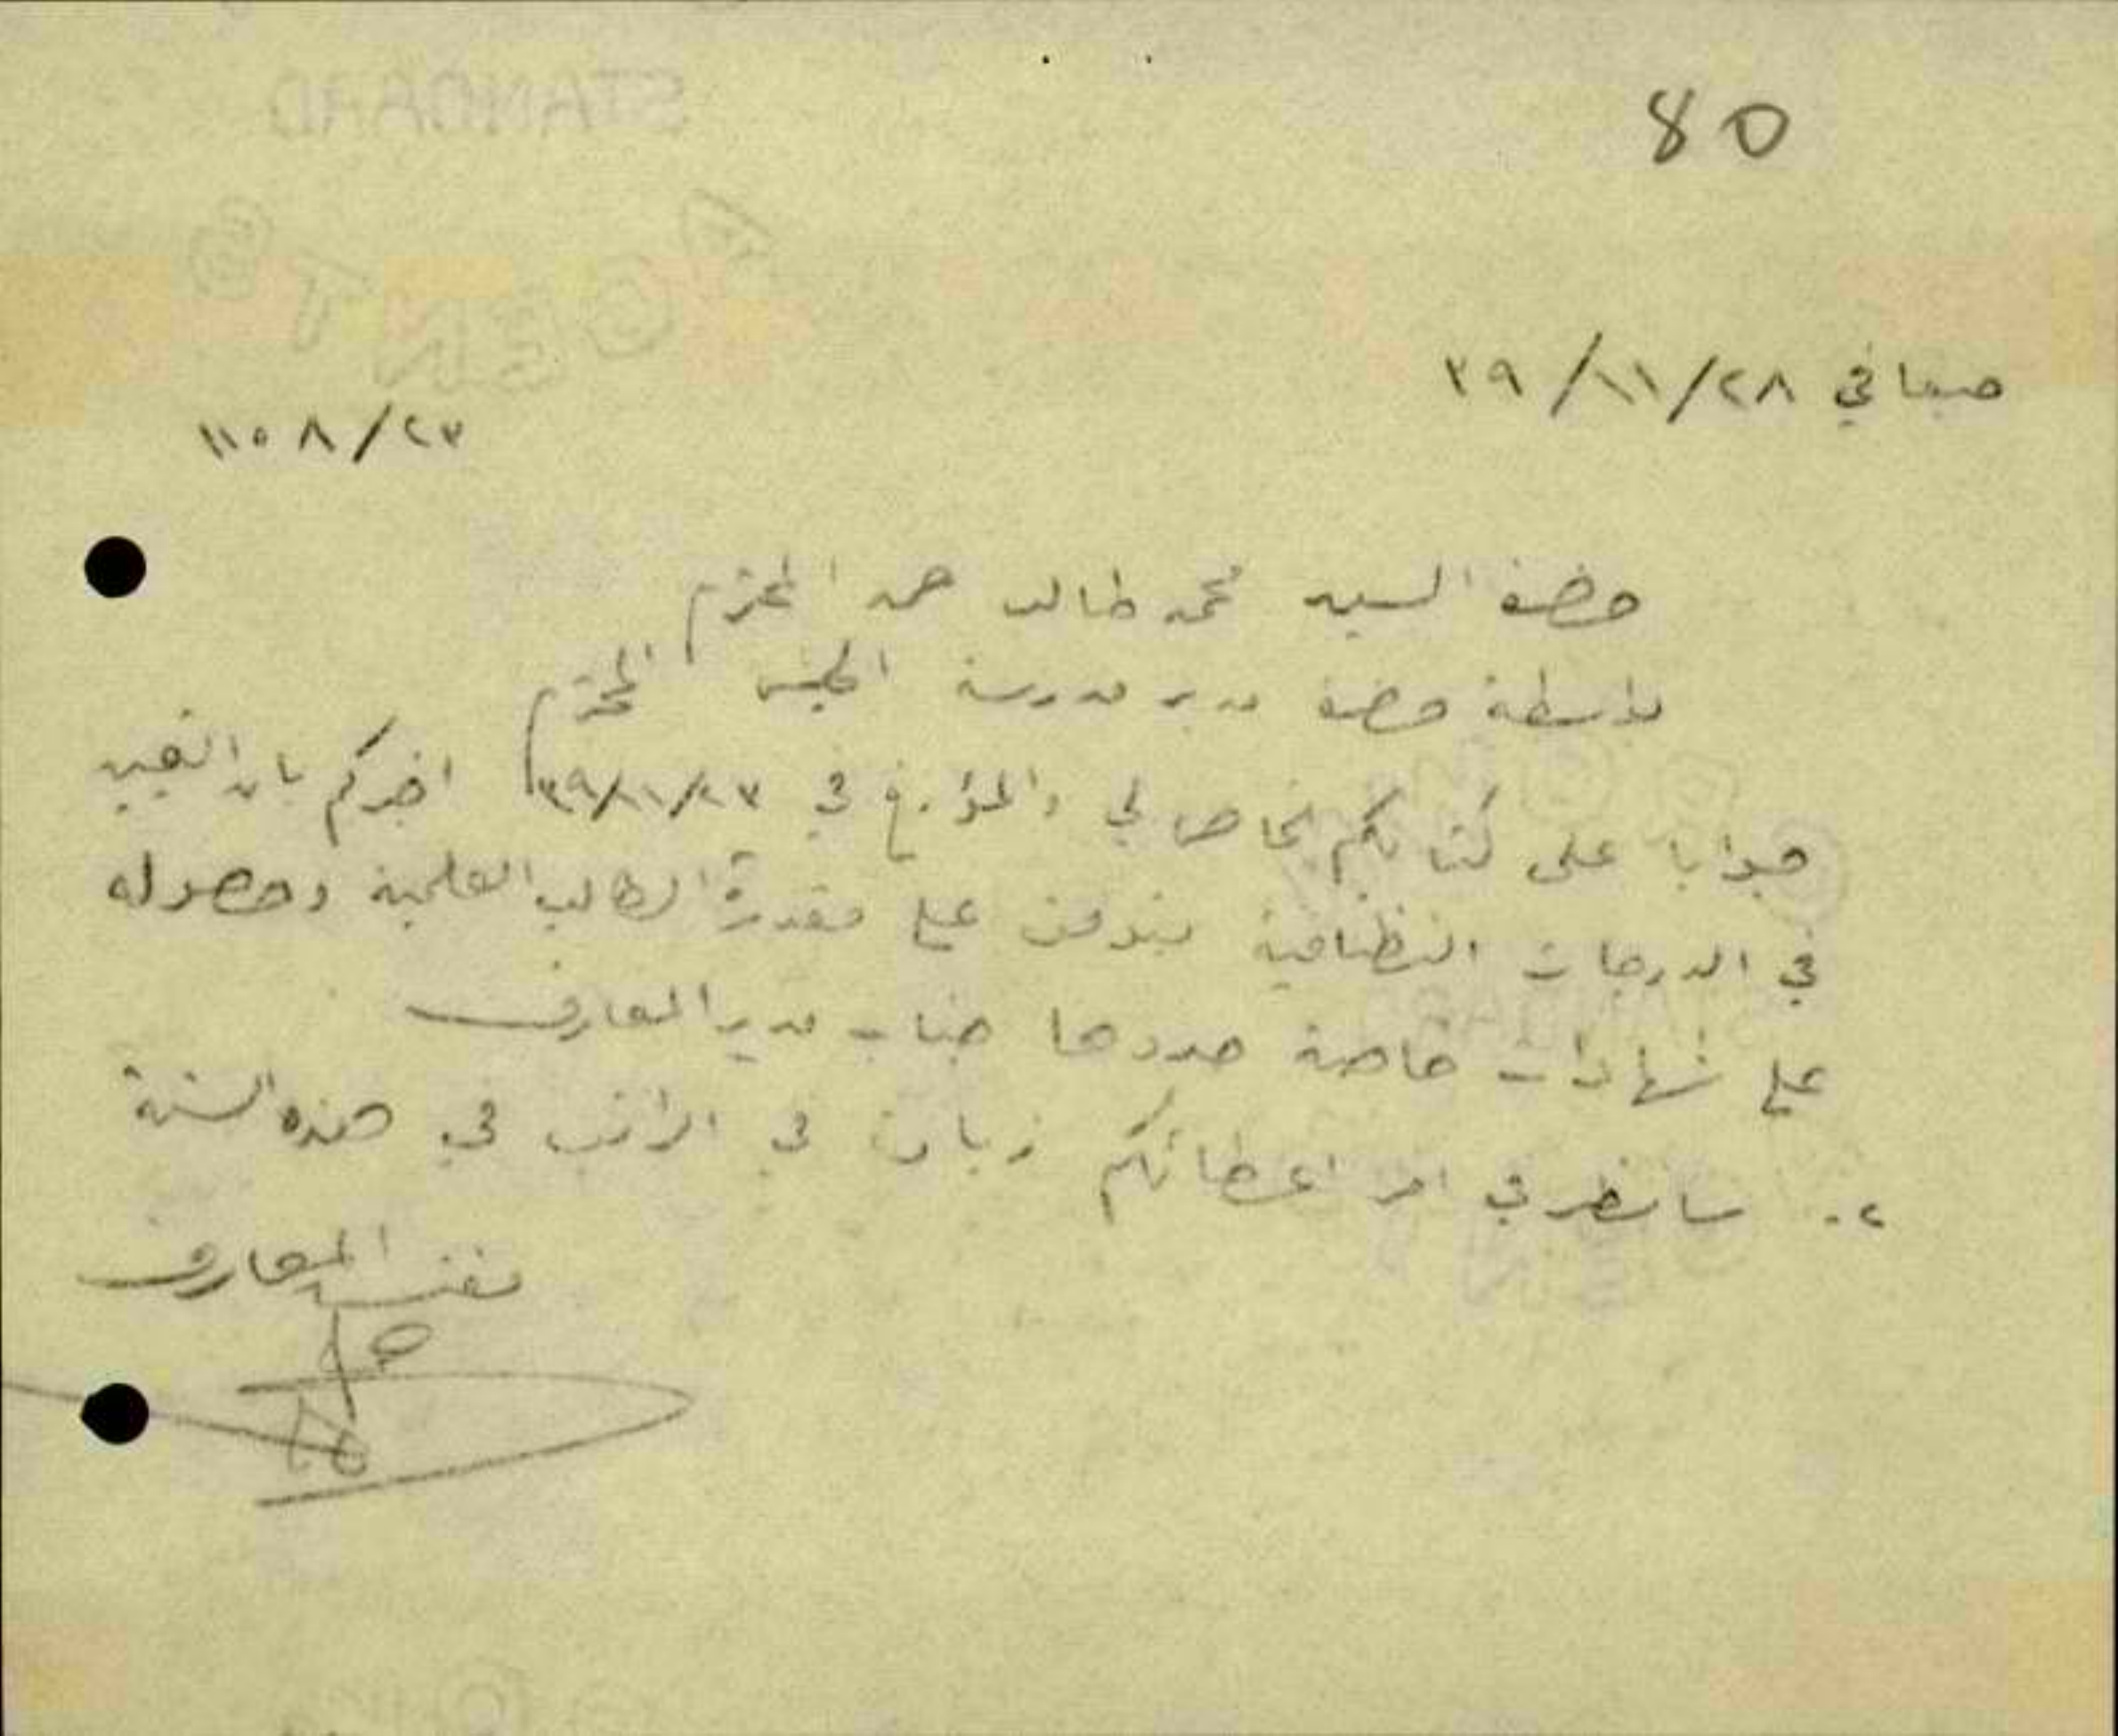 80
في ٢٨/١١/٣٩
١١٥٨/٢٣
حضرة السيد محمد خالد حمد المحترم
بواسطة حضرة مدير مدرسة المحترم
جوابا على كتابكم الخاص لي والمؤرخ في ٢٣/١١/٣٩ اخبركم بان التعيين
في الدرجات النظامية يتوقف على مقدرة الطالب العلمية وحصوله
على شهادات خاصة حددها جناب مدير المعارف
٢. سانظر في امر اعطائكم زيادة في الراتب في هذه السنة
مفتش المعارف